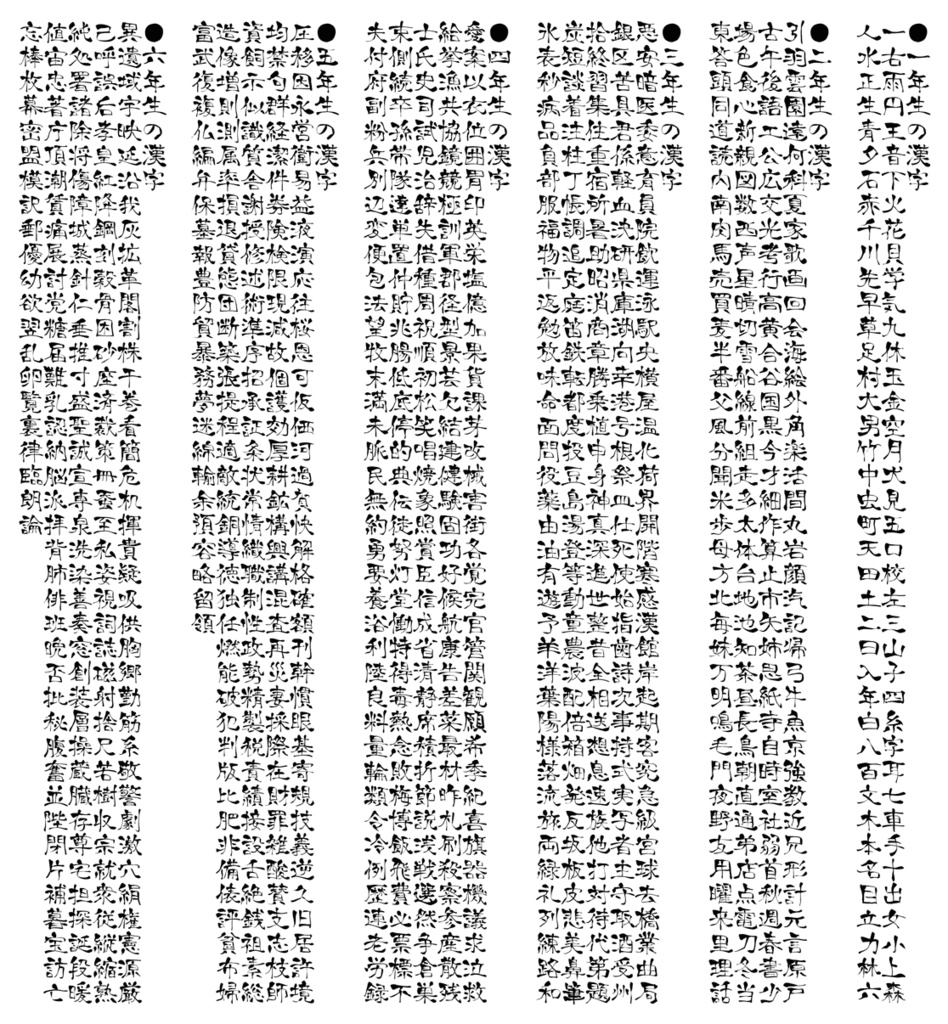 ●一年生の漢字
一右雨円王音下火花貝学気九休玉金空月犬見五口校左三山子四糸字耳七車手十出女小上森
人水正生青夕石赤千川先早草足村大男竹中虫町天田土二日入年白八百文木本名目立力林六
●二年生の漢字
引羽雲園遠何科夏家歌画回会海絵外角楽活間丸岩顔汽記帰弓牛魚京強教近兄形計元言原戸
古午後語工公広交光考行高黄合谷国黒今才細作算止市矢姉思紙寺自時室社弱首秋週春書少
場色食心新親図数西声星晴切雪船線前組走多太体台地池知茶昼長鳥朝直通弟店点電刀冬当
東答頭同道読内南肉馬売買麦半番父風分聞米歩母方北毎妹万明鳴毛門夜野友用曜来里理話
●三年生の漢字
悪安暗医委意育員院飲運泳駅央横屋温化荷界開階寒感漢館岸起期客究急級宮球去橋業曲局
銀区苦具君係軽血決研県庫湖向幸港号根祭皿仕死使始指歯詩次事持式実写者主守取酒受州
拾終習集住重宿所暑助昭消商章勝乗植申身神真深進世整昔全相送想息速族他打対待代第題
炭短談着注柱丁帳調追定庭笛鉄転都度投豆島湯登等動童農波配倍箱畑発反坂板皮悲美鼻筆
氷表秒病品負部服福物平返勉放味命面問役薬由油有遊予羊洋葉陽様落流旅両緑礼列練路和
●四年生の漢字
愛案以衣位囲胃印英栄塩億加果貨課芽改械害街各覚完官管関観願希季紀喜旗器機議求泣救
給挙漁共協鏡競極訓軍郡径型景芸欠結建健験固功好候航康告差菜最材昨札刷殺察参産散残
士氏史司試児治辞失借種周祝順初松笑唱焼象照賞臣信成省清静席積折節説浅戦選然争倉巣
束側続卒孫帯隊達単置仲貯兆腸低底停的典伝徒努灯堂働特得毒熱念敗梅博飯飛費必票標不
夫付府副粉兵別辺変便包法望牧末満未脈民無約勇要養浴利陸良料量輪類令冷例歴連老労録
●五年生の漢字
圧移因永営衛易益液演応往桜恩可仮価河過賀快解格確額刊幹慣眼基寄規技義逆久旧居許境
均禁句群経潔件券険検限現減故個護効厚耕鉱構興講混査再災妻採際在財罪雑酸賛支志枝師
資飼示似識質舎謝授修述術準序招承証条状常情織職制性政勢精製税責績接設舌絶銭祖素総
造像増則測属率損退貸態団断築張提程適敵統銅導徳独任燃能破犯判版比肥非備俵評貧布婦
富武復複仏編弁保墓報豊防貿暴務夢迷綿輸余預容略留領
●六年生の漢字
異遺域宇映延沿我灰拡革閣割株干巻看簡危机揮貴疑吸供胸郷勤筋系敬警劇激穴絹権憲源厳
己呼誤后孝皇紅降鋼刻穀骨困砂座済裁策冊蚕至私姿視詞誌磁射捨尺若樹収宗就衆従縦縮熟
純処署諸除将傷障城蒸針仁垂推寸盛聖誠宣専泉洗染善奏窓創装層操蔵臓存尊宅担探誕段暖
値宙忠著庁頂潮賃痛展討党糖届難乳認納脳派拝背肺俳班晩否批秘腹奮並陛閉片補暮宝訪亡
忘棒枚幕密盟模訳郵優幼欲翌乱卵覧裏律臨朗論